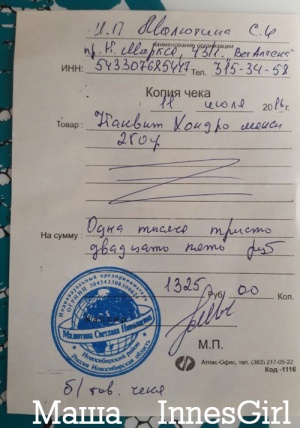 И.П Малютина С.Н
Наименование организации
пр. К. Маркса, 43/1. ВетАптека
ИНН: Тел. 315-34-58
Копия чека
11 июля 2016г.
Товар: Канвит Хондро макси
230гр
На сумму: Одна тысяча триста
двадцать пять руб
1325 Руб. 00 Коп.
Индивидуальный предприниматель
Малютина Светлана
Новосибирский район
Россия Новосибирская область
М.П.
Атлас-Офис, тел. (383) 217-05-22
Код -1116
б/тов. чека
Маша InnesGirl